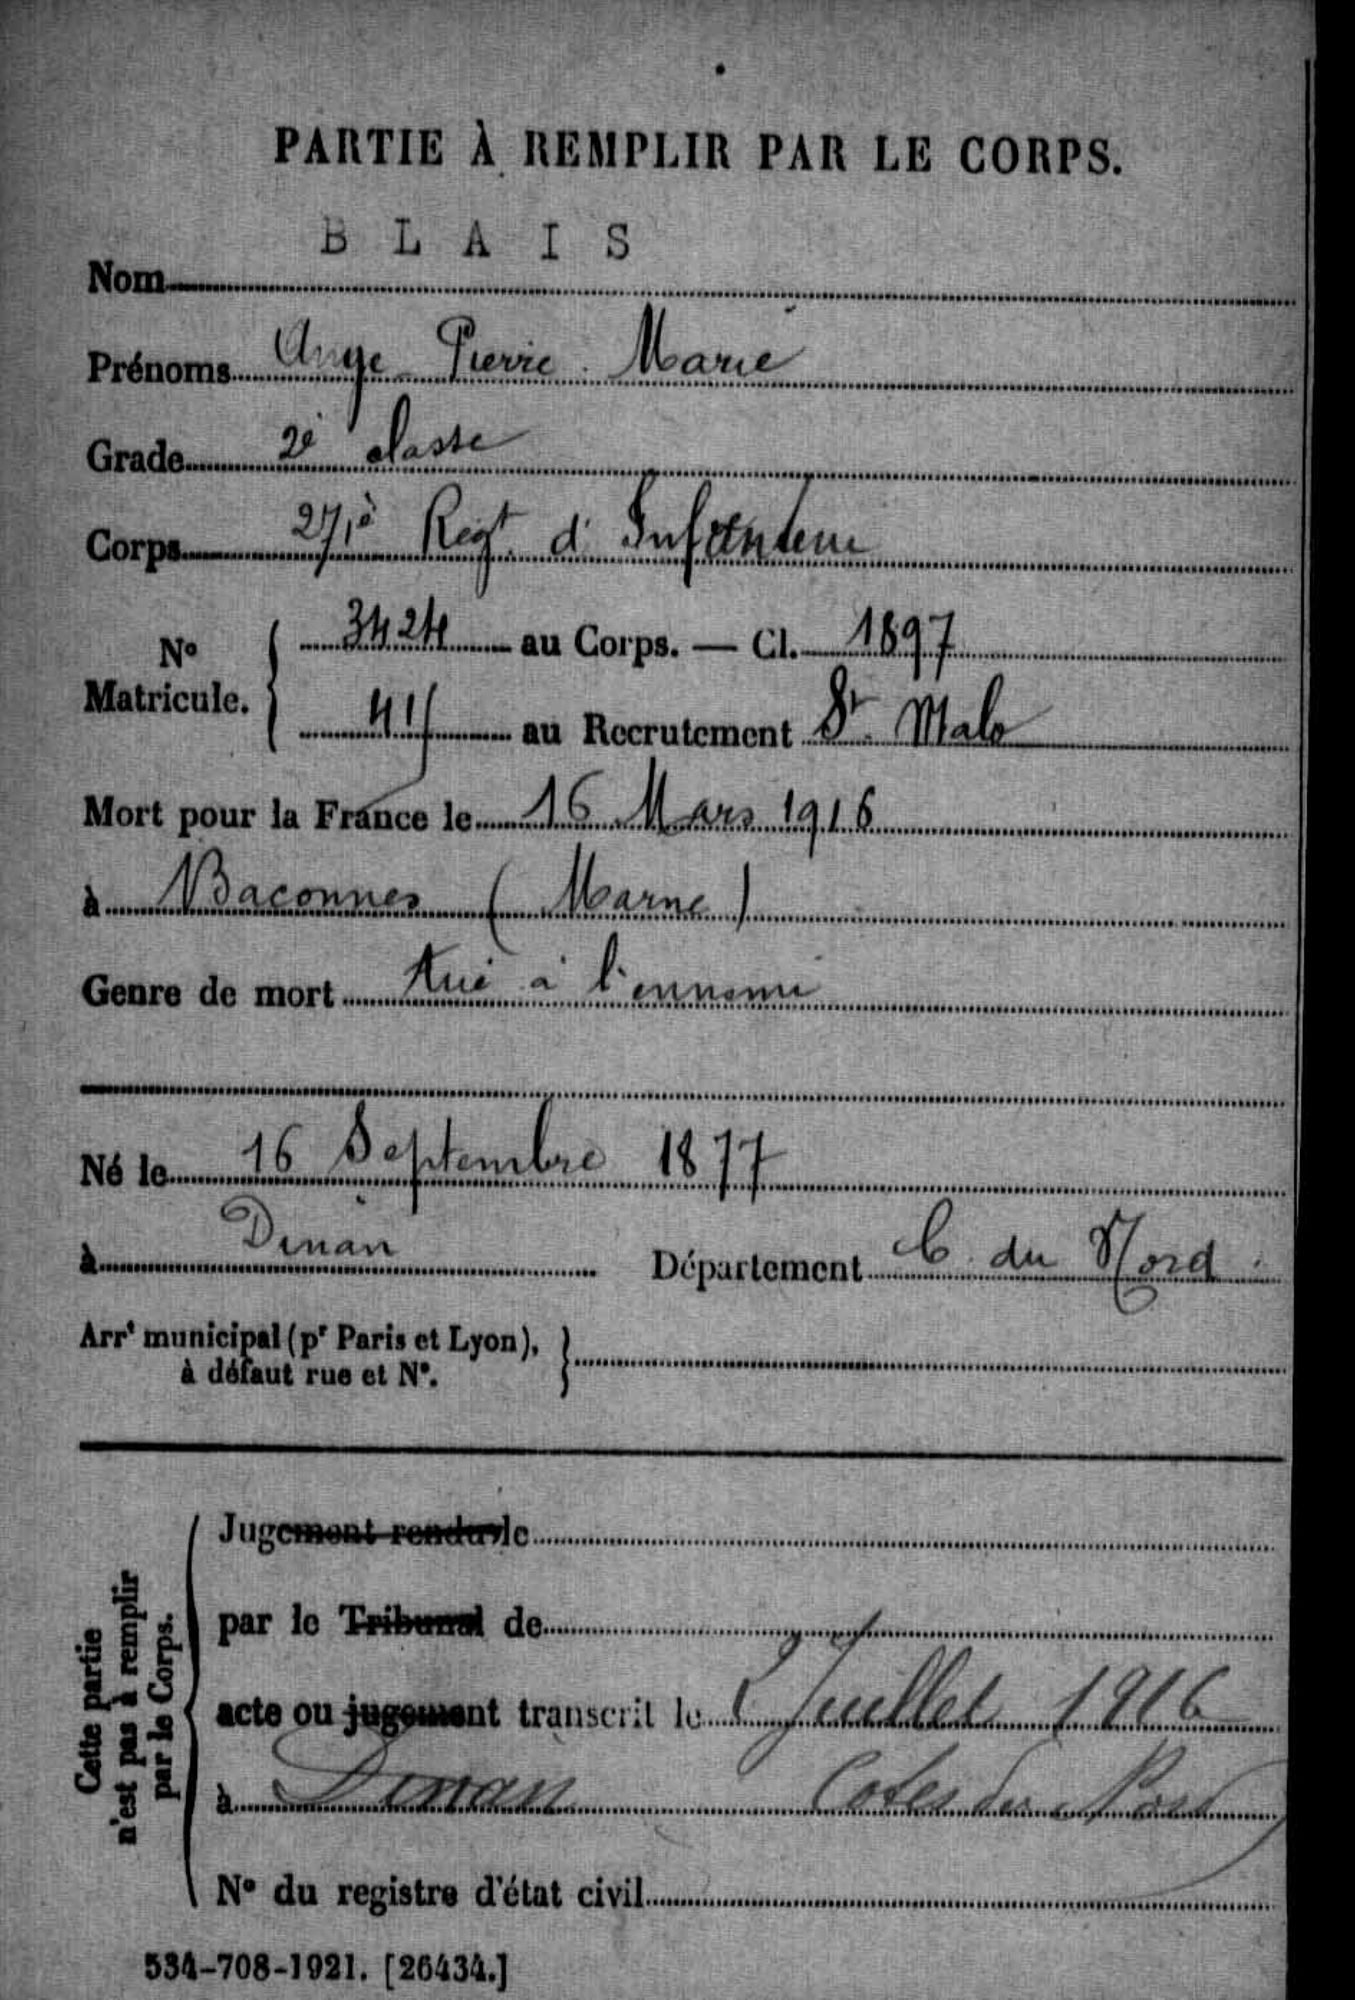 PARTIE À REMPLIR PAR LE CORPS.
BLAIS
Nom
Prénoms Ange Pierre Marie
Grade 2e classe
Corps 271e Regt d'Infanterie
No Matricule. { 3424 au Corps. — Cl. 1897
au Recrutement St Malo
Mort pour la France le 16 Mars 1916
à Baconnes (Marne)
Genre de mort tué à l'ennemi
Né le 16 Septembre 1877
à Dinan Département C. du Nord.
Arrt municipal (pr Paris et Lyon),
à défaut rue et No. }
Cette partie
n'est pas à remplir
par le Corps.
Jugement rendu le
par le Tribunal de
acte ou jugement transcrit le Juillet 1916
à Dinan Cotes du Nord
No du registre d'état civil
534-708-1921. [26434.]